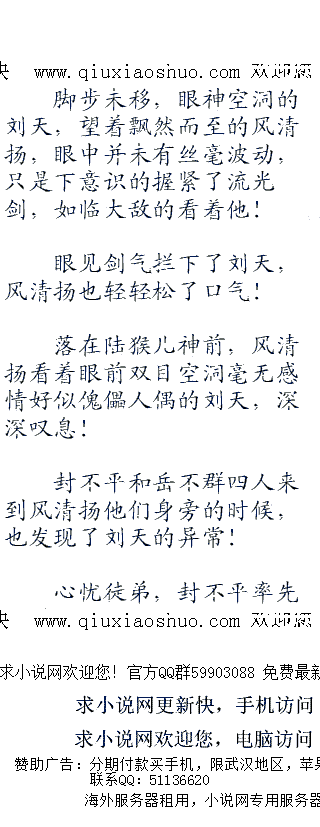 www.qiuxiaoshuo.com 欢迎您
脚步未移，眼神空洞的
刘天，望着飘然而至的风清
扬，眼中并未有丝毫波动，
只是下意识的握紧了流光
剑，如临大敌的看着他！
眼见剑气拦下了刘天，
风清扬也轻轻松了口气！
落在陆猴儿神前，风清
扬看着眼前双目空洞毫无感
情好似傀儡人偶的刘天，深
深叹息！
封不平和岳不群四人来
到风清扬他们身旁的时候，
也发现了刘天的异常！
心忧徒弟，封不平率先
www.qiuxiaoshuo.com 欢迎您
求小说网欢迎您！官方QQ群59903088 免费最新
求小说网更新快，手机访问
求小说网欢迎您，电脑访问
赞助广告：分期付款买手机，限武汉地区，苹果
联系QQ：51136620
海外服务器租用，小说网专用服务器